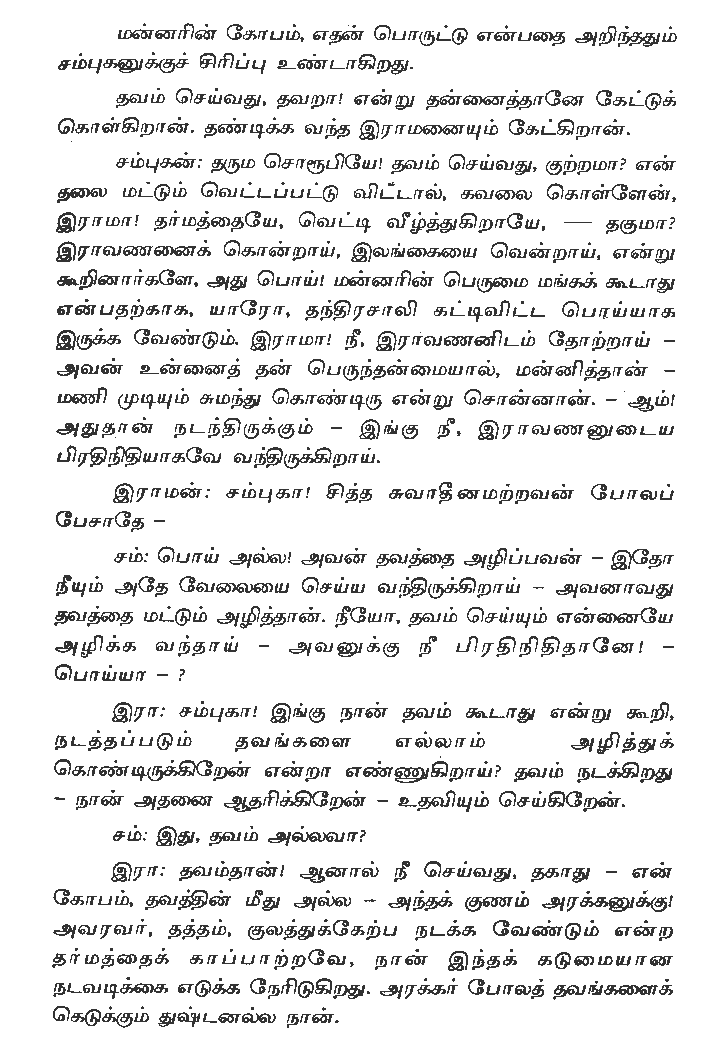 மன்னரின் கோபம், எதன் பொருட்டு என்பதை அறிந்ததும்
சம்புகனுக்குச் சிரிப்பு உண்டாகிறது.
தவம் செய்வது, தவறா! என்று தன்னைத்தானே கேட்டுக்
கொள்கிறான். தண்டிக்க வந்த இராமனையும் கேட்கிறான்.
சம்புகன்: தரும சொரூபியே! தவம் செய்வது, குற்றமா? என்
தலை மட்டும் வெட்டப்பட்டு விட்டால், கவலை கொள்ளேன்,
இராமா! தர்மத்தையே, வெட்டி வீழ்த்துகிறாயே, — தகுமா?
இராவணனைக் கொன்றாய், இலங்கையை வென்றாய், என்று
கூறினார்களே, அது பொய்! மன்னரின் பெருமை மங்கக் கூடாது
என்பதற்காக, யாரோ, தந்திரசாலி கட்டிவிட்ட பொய்யாக
இருக்க வேண்டும். இராமா! நீ, இராவணனிடம் தோற்றாய் –
அவன் உன்னைத் தன் பெருந்தன்மையால், மன்னித்தான் –
மணி முடியும் சுமந்து கொண்டிரு என்று சொன்னான். – ஆம்!
அதுதான் நடந்திருக்கும் – இங்கு நீ, இராவணனுடைய
பிரதிநிதியாகவே வந்திருக்கிறாய்.
இராமன்: சம்புகா! சித்த சுவாதீனமற்றவன் போலப்
பேசாதே –
சம்: பொய் அல்ல! அவன் தவத்தை அழிப்பவன் – இதோ
நீயும் அதே வேலையை செய்ய வந்திருக்கிறாய் – அவனாவது
தவத்தை மட்டும் அழித்தான். நீயோ, தவம் செய்யும் என்னையே
அழிக்க வந்தாய் – அவனுக்கு நீ பிரதிநிதிதானே! –
பொய்யா – ?
இரா: சம்புகா! இங்கு நான் தவம் கூடாது என்று கூறி,
நடத்தப்படும் தவங்களை எல்லாம் அழித்துக்
கொண்டிருக்கிறேன் என்றா எண்ணுகிறாய்? தவம் நடக்கிறது
– நான் அதனை ஆதரிக்கிறேன் – உதவியும் செய்கிறேன்.
சம்: இது, தவம் அல்லவா?
இரா: தவம்தான்! ஆனால் நீ செய்வது, தகாது – என்
கோபம், தவத்தின் மீது அல்ல – அந்தக் குணம் அரக்கனுக்கு!
அவரவர், தத்தம், குலத்துக்கேற்ப நடக்க வேண்டும் என்ற
தர்மத்தைக் காப்பாற்றவே, நான் இந்தக் கடுமையான
நடவடிக்கை எடுக்க நேரிடுகிறது. அரக்கர் போலத் தவங்களைக்
கெடுக்கும் துஷ்டனல்ல நான்.